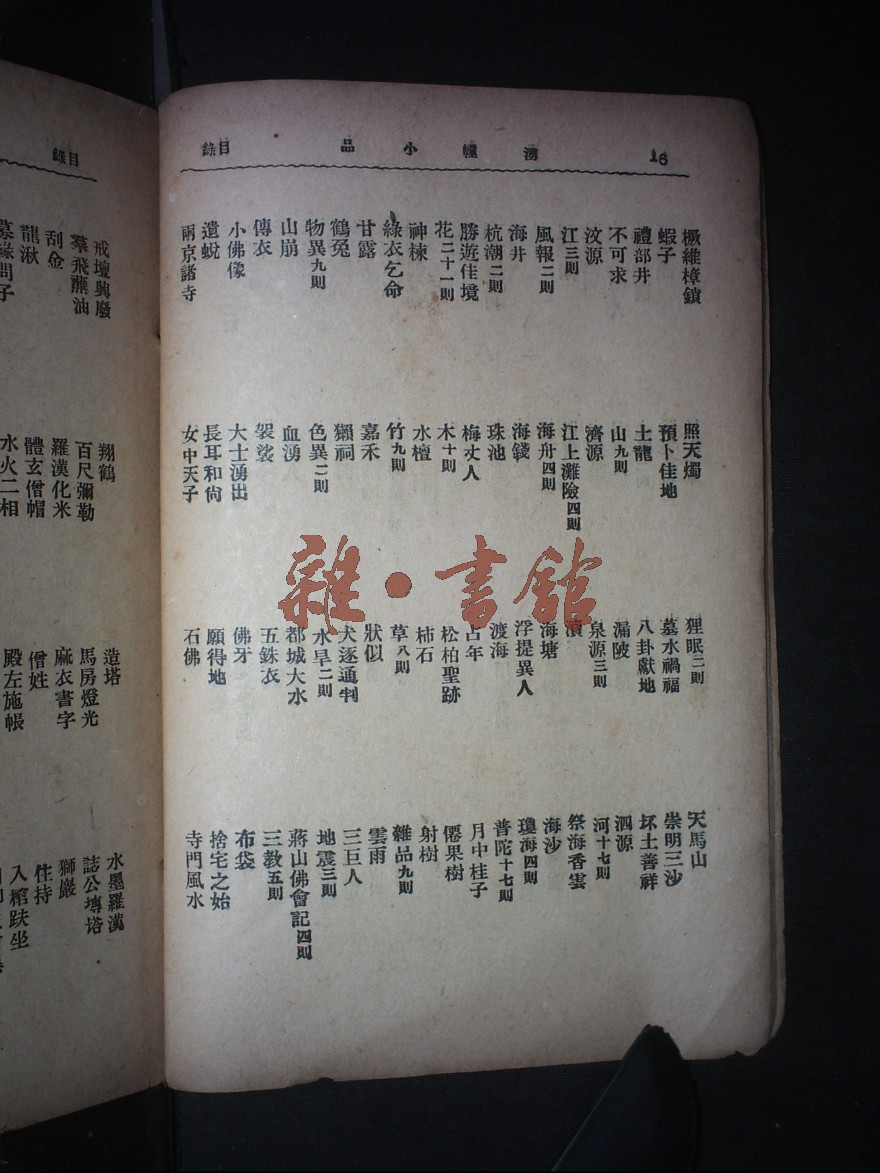 16 湧幢小品 目錄
橛維樟鎖 照天燭 狸眠二則 天馬山
蝦子 預卜佳地 墓水禍福 崇明三沙
禮部井 土龍 八卦獻地 坏土善祥
不可求 山九則 漏陂 泗源
汶源 濟源 泉源三則 河十七則
江三則 江上灘險四則 瀆 祭海香雲
風報二則 海舟四則 海塘 海沙
海井 海錢 浮提異人 瓊海四則
杭潮二則 珠池 渡海 普陀十七則
勝遊佳境 梅丈人 占年 月中桂子
花二十一則 木十則 松柏聖跡 僊果樹
神楝 水檀 柿石 射樹
綠衣乞命 竹九則 草八則 雜品九則
甘露 嘉禾 狀似 雲雨
鶴冤 獺祠 犬逐通判 三巨人
物異九則 色異二則 水旱二則 地震三則
山崩 血湧 都城大水 蔣山佛會記四則
傳衣 袈裟 五銖衣 三教五則
小佛像 大士湧出 佛牙 布袋
遺蛻 長耳和尙 願得地 捨宅之始
兩京諸寺 女中天子 石佛 寺門風水
雜·書館
目錄
戒壇興廢 翔鶴 造塔 水墨羅漢
羣飛蘸油 百尺彌勒 馬房燈光 誌公塼塔
刮金 羅漢化米 麻衣書字 獅巖
龍湫 體玄僧帽 僧姓 住持
水火二相 殿左施帳 入棺趺坐